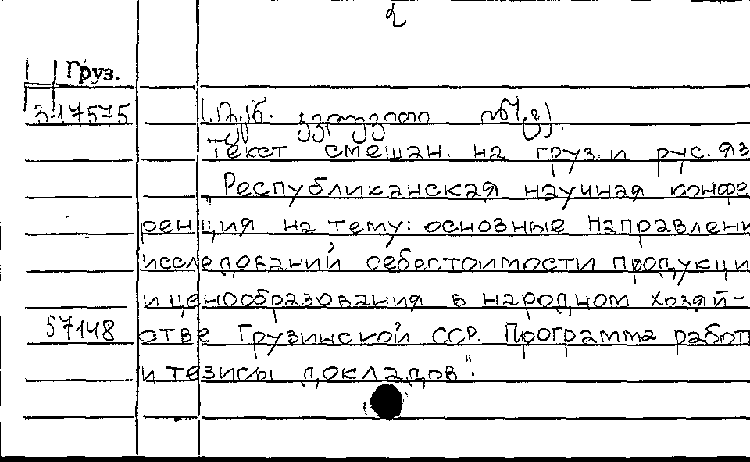 2
Груз.
317575
Текст смешан. на груз. и рус. яз
"Республиканская научная конфе
ренция на тему: основные направлени
исследований себестоимости продукци
и ценообразования в народном хозяй-
стве Грузинской ССР. Программа работ
57148
и тезисы докладов".